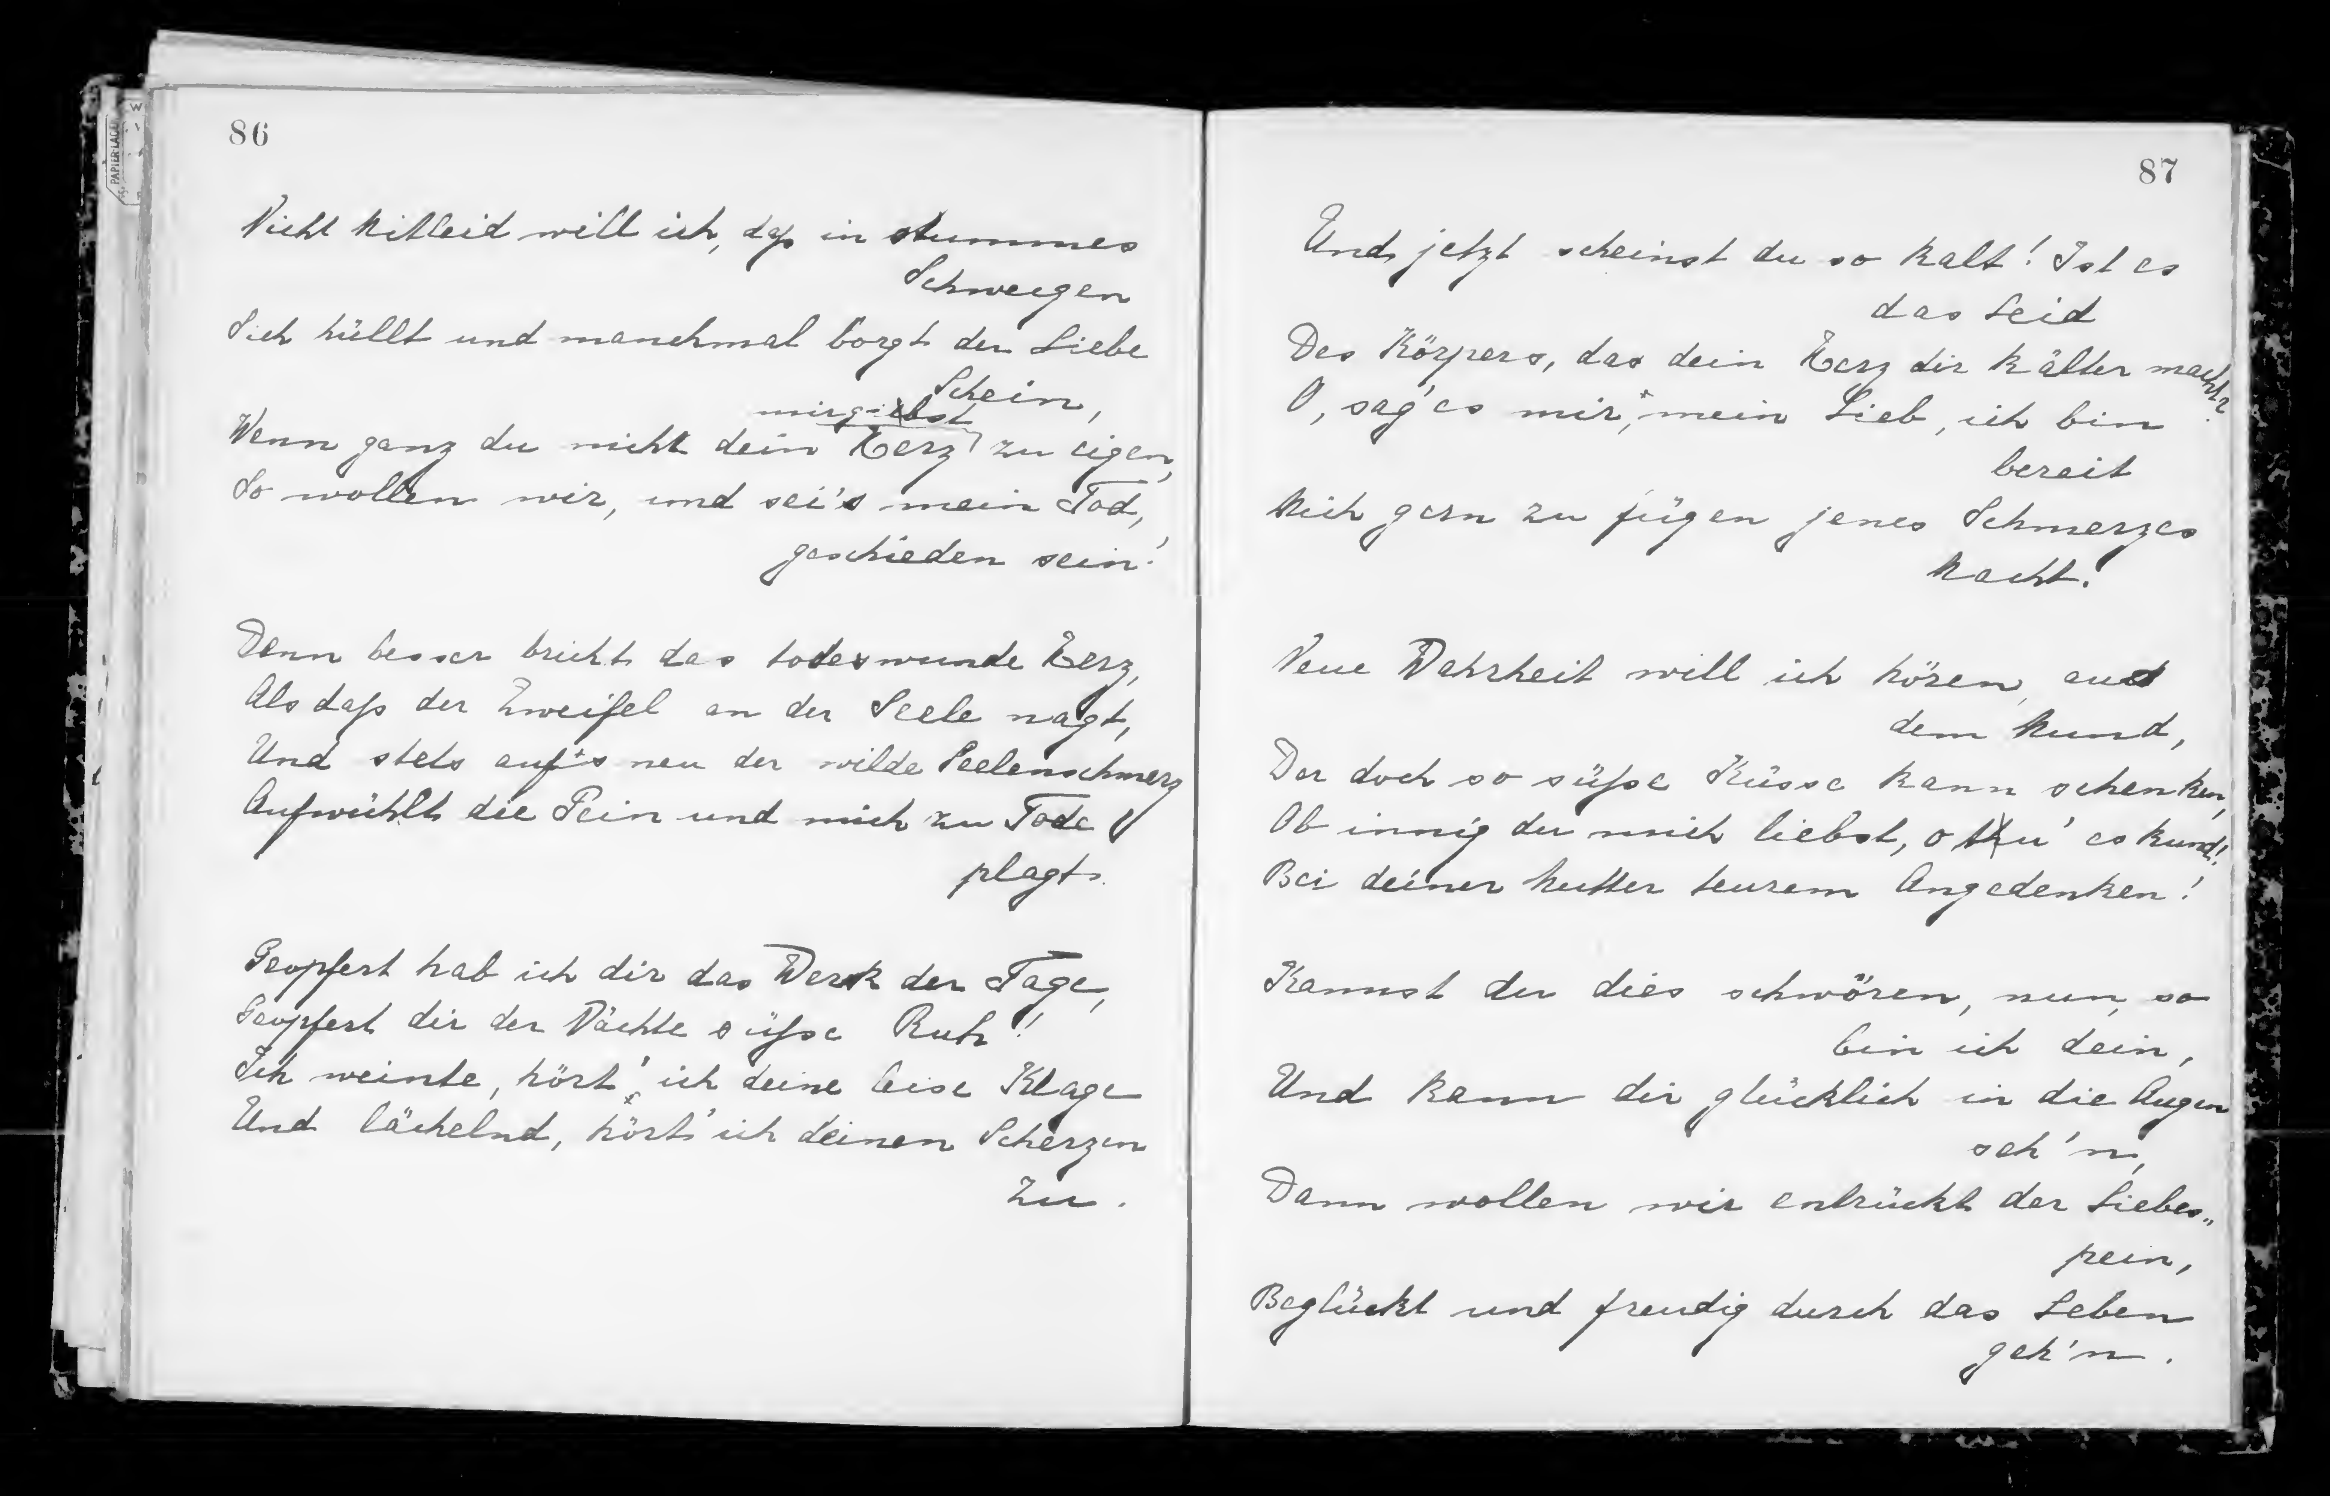 86
Nicht Mitleid will ich, daß in stummes
Schweigen
Sich hüllt und manchmal borgt der Liebe
Schein,
mir giebst
Wenn ganz du nicht dein Herz zu eigen,
So wollen wir, und sei's mein Tod,
geschieden sein!
Denn besser bricht das todeswunde Herz,
Als daß der Zweifel an der Seele nagt,
Und stets auf's neu der wilde Seelenschmerz
Aufwühlt die Pein und mich zu Tode
plagt.
Geopfert hab ich dir das Werk der Tage,
Geopfert dir der Nächte süße Ruh!
Ich weinte, hört' ich deine leise Klage
Und lächelnd, hört' ich deinen Scherzen
zu.
87
Und jetzt scheinst du so kalt! Ist es
das Leid
Des Körpers, das dein Herz dir kälter macht?
O, sag' es mir, mein Lieb, ich bin
bereit
Mich gern zu fügen jenes Schmerzes
Macht.
Neue Wahrheit will ich hören, aus
dem Mund,
Der doch so süße Küsse kann schenken,
Ob innig du mich liebst, o thu' es kund!
Bei deiner Mutter teurem Angedenken!
Kannst du dies schwören, nun, so
bin ich dein,
Und kann dir glücklich in die Augen
seh'n,
Dann wollen wir entrückt der Liebes„
pein,
Beglückt und freudig durch das Leben
geh'n.